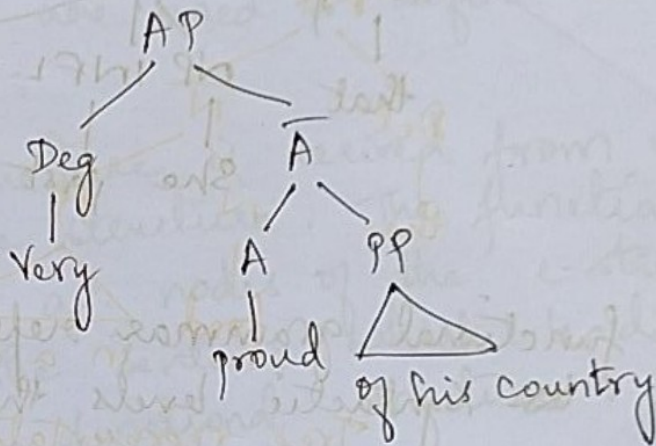 AP
Deg Ā
Very A PP
proud of his country